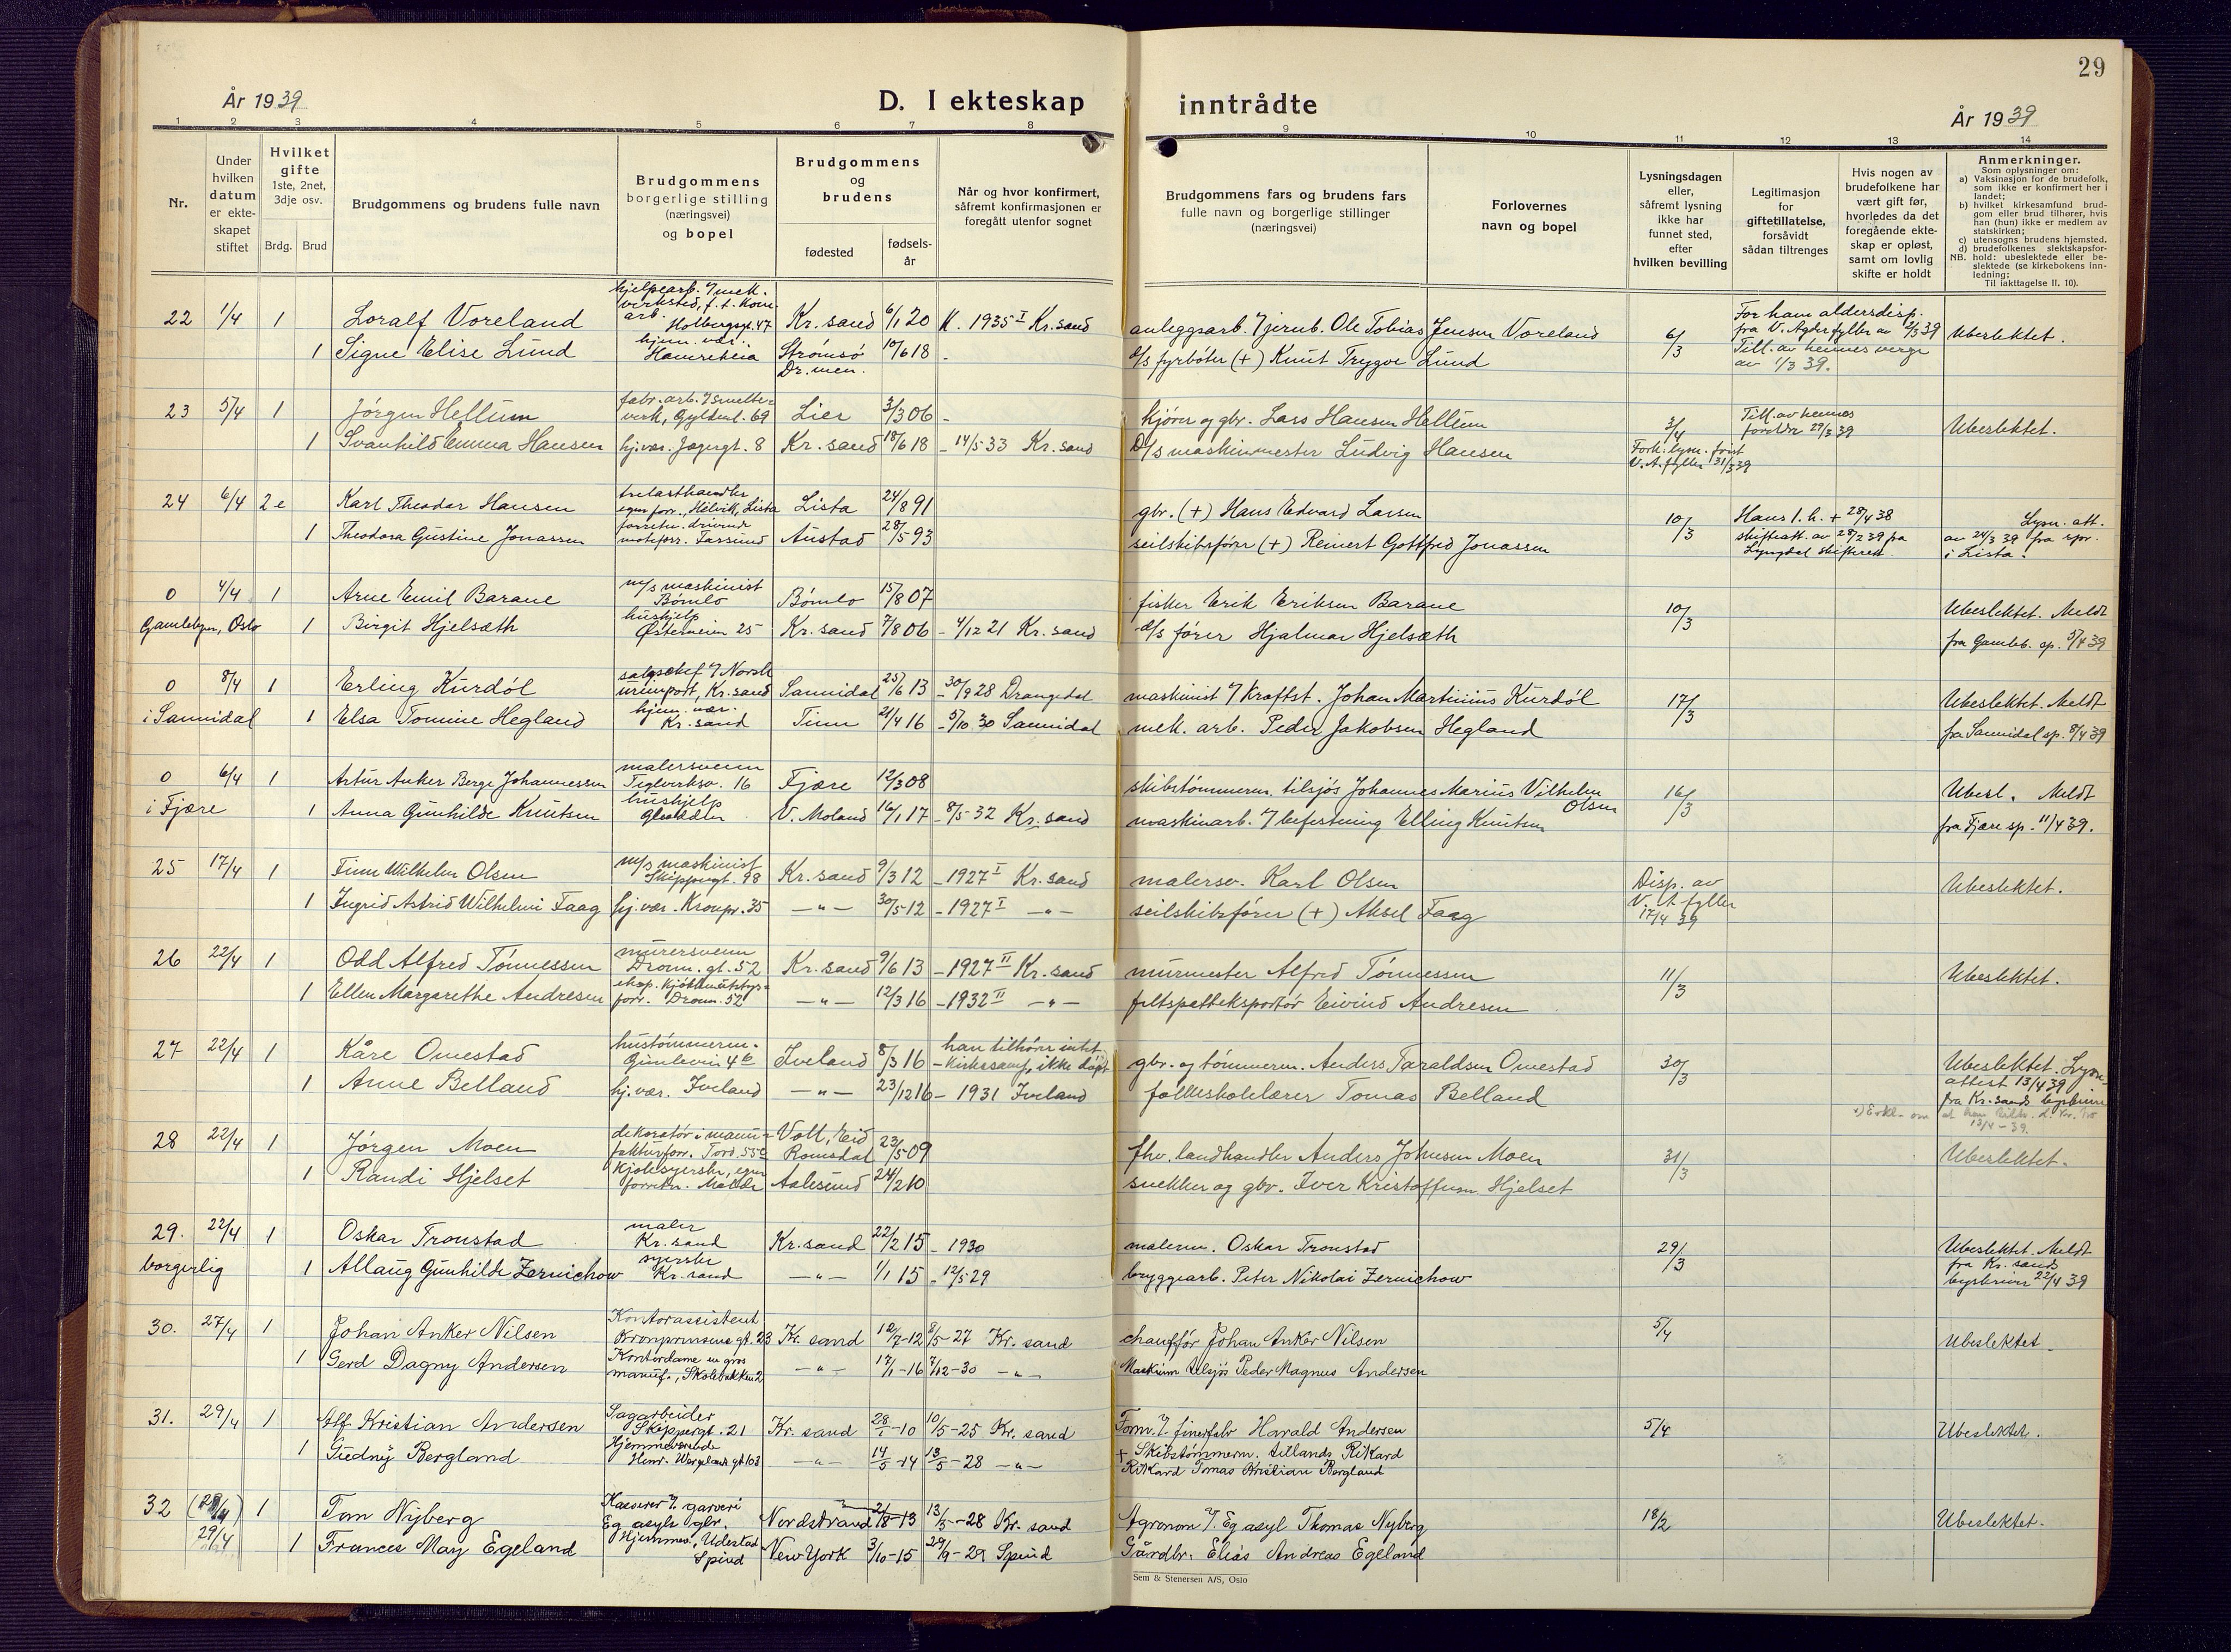 29
År 1939
D. I ekteskap inntrådte
År 1939
1 2 3 4 5 6 7 8 9 10 11 12 13 14
Nr.
Under hvilken datum er ekteskapet stiftet
Hvilket gifte 1ste, 2net, 3dje osv.
Brdg. Brud
Brudgommens og brudens fulle navn
Brudgommens borgerlige stilling (næringsvei) og bopel
Brudgommens og brudens
fødested
fødselsår
Når og hvor konfirmert, såfremt konfirmasjonen er foregått utenfor sognet
Brudgommens fars og brudens fars fulle navn og borgerlige stillinger (næringsvei)
Forlovernes navn og bopel
Lysningsdagen eller, såfremt lysning ikke har funnet sted, efter hvilken bevilling
Legitimasjon for giftetillatelse, forsåvidt sådan tiltrenges
Hvis nogen av brudefolkene har vært gift før, hvorledes da det foregående ekteskap er opløst, samt om lovlig skifte er holdt
Anmerkninger.
Som oplysninger om:
a) Vaksinasjon for de brudefolk, som ikke er konfirmert her i landet;
b) hvilket kirkesamfund brudgom eller brud tilhører, hvis han (hun) ikke er medlem av statskirken;
c) utensogns brudens hjemsted.
d) brudefolkenes slektskapsfor-
NB. hold: ubeslektede eller beslektede (se kirkebokens innledning;
Til iakttagelse II. 10).
22 1/4 1 Loralf Voreland hjelpearb. v/ mek. verksted, f. t. kom. arb. Holbergsgt. 47 Kr.sand 6/1 20 K. 1935 I Kr.sand anleggsarb. v/ jernb. Ole Tobias Jensen Voreland 6/3 For ham aldersdisp. fra V. Agder fylke av 2/3 39 Ubeslektet.
1 Signe Elise Lund hjem. vær. Hamreheia Strømsø Dr.men. 10/6 18 - d/s fyrbøter (+) Knut Trygve Lund Till. av hennes verge av 1/3 39.
23 5/4 1 Jørgen Hellum fabr.arb. v/ smelteverk, Gyldenl. 69 Lier 3/3 06 - kjører og gbr. Lars Hansen Hellum 3/4 Till. av hennes foreldre 29/3 39 Ubeslektet.
1 Svanhild Emma Hansen hj.vær. Jegergt. 8 Kr.sand 18/6 18 - 14/5 33 Kr.sand D/s maskinmester Ludvig Hansen Fork. lysn. frist V.A. fylke 31/3 39
24 6/4 2e Karl Theodor Hansen trelasthandler egen forr., Helvik, Lista Lista 24/8 91 gbr. (+) Hans Edvard Larsen 10/3 Hans 1. h. + 28/4 38 skifteatt. av 28/2 39 fra Lyngdal skifterett. Lysn. att. av 24/3 39 fra spr. i Lista.
1 Theodora Gustine Jonassen forretn. drivende moteforr. Farsund Austad 28/5 93 seilskibsfører (+) Reinert Gottfred Jonassen
0 4/4 1 Arne Emil Barane m/s maskinist Bømlo Bømlo 15/8 07 fisker Erik Eriksen Barane 10/3 Ubeslektet. Meldt
Gamlebyen, Oslo 1 Birgit Hjelsæth hushjelp Østerveien 25 Kr.sand 7/8 06 - 4/12 21 Kr.sand d/s fører Hjalmar Hjelsæth fra Gamleb. sp. 5/4 39
0 8/4 1 Erling Kurdøl salgschef v/ Norsk import, Kr.sand Sannidal 25/6 13 - 30/9 28 Drangedal maskinist v/ Kraftst. Johan Martinius Kurdøl 17/3 Ubeslektet. Meldt
i Sannidal 1 Elsa Tomine Hegland hjem. vær. Kr.sand Tinn 21/4 16 - 5/10 30 Sannidal mek. arb. Peder Jakobsen Hegland fra Sannidal sp. 8/4 39
0 6/4 1 Artur Anker Berge Johannessen malersvenn Teglverksv. 16 Fjære 12/3 08 skibstømmerm. tilsjøs Johannes Marius Vilhelm Olsen 16/3 Ubesl. Meldt
i Fjære 1 Anna Gunhilde Knutsen hushjelp V. Moland 16/1 17 - 8/5-32 Kr.sand maskinarb. v/ befestning Elling Knutsen fra Fjære sp. 11/4 39.
25 17/4 1 Finn Wilhelm Olsen m/s maskinist Skippergt. 98 Kr.sand 9/3 12 - 1927 I Kr.sand malersv. Karl Olsen Disp. av V.A. fylke 17/4 39 Ubeslektet.
1 Ingrid Astrid Wilhelmi Faag hj.vær. Kronpr. 35 -"- 30/5 12 - 1927 I -"- seilskibsfører (+) Aksel Faag
26 22/4 1 Odd Alfred Tønnessen murersvenn Dronn. gt. 52 Kr.sand 9/6 13 - 1927 II Kr.sand murmester Alfred Tønnessen 11/3 Ubeslektet.
1 Ellen Margarethe Andresen forr. Dronn. 52 -"- 12/3 16 - 1932 II -"- feltspatteksportør Eivind Andresen
27 22/4 1 Kåre Omestad hustømmerm. Gimleveien 4 b Iveland 8/3 16 - han tilhører intet kirkesamf., ikke døpt gbr. og tømmerm. Anders Taraldsen Omestad 30/3 Ubeslektet. Lysn.attest 13/4 39 fra Kr.sands byskriver
1 Anne Belland hj.vær. Iveland -"- 23/12 16 - 1931 Iveland folkeskolelærer Tomas Belland
28 22/4 1 Jørgen Moen dekoratør i manufakturforr. Tord. 55 c Voll, Eid Romsdal 23/5 09 fhv. landhandler Anders Johnsen Moen 31/3 Ubeslektet.
1 Randi Hjelset kjolesyerske, egen forretn. Molde Aalesund 24/2 10 snekker og gbr. Iver Kristoffersen Hjelset
29. 22/4 1 Oskar Tronstad maler Kr.sand Kr.sand 22/2 15 - 1930 malerm. Oskar Tronstad 29/3 Ubeslektet. Meldt fra Kr.sands byskriver 22/4 39
borgerlig 1 Allaug Gunhilde Zernichow syerske Kr.sand -"- 1/1 15 - 12/5 29 bryggearb. Peter Nikolai Zernichow
30. 27/4 1 Johan Anker Nilsen Kontorassistent Kronprinsens gt. 23 Kr. sand 12/7-12 8/5-27 Kr. sand chauffør Johan Anker Nilsen 5/4 Ubeslektet
1 Gerd Dagny Andersen Kontordame en gros manuf., Skolebakken 2 -"- 17/1-16 7/12-30 -"- Maskinm tilsjøs Peder Magnus Andersen
31. 29/4 1 Alf Kristian Andersen Sagarbeider Skippergt. 21 Kr. sand 28/1-10 10/5-25 Kr. sand Form. v. finerfabr Harald Andersen 5/4 Ubeslektet.
1 Gudny Bergland Hjemmeværende Henr. Wergelands gt 103 -"- 14/5-14 13/5-28 -"- + Skibstømmerm. tillands Rikard
Rikard Tomas Kristian Bergland
32 (29/4) 1 Tom Nyberg Kasserer v. garveri Eg asyls gbr. Nordstrand 21/8-13 13/5-28 Kr. sand Agronom v. Eg asyl Thomas Nyberg 18/2 Ubeslektet.
29/4 1 Frances May Egeland Hjemmev., Udestad Spind New York 3/10-15 29/9-29 Spind Gårdbr. Elias Andreas Egeland
Sem & Stenersen A/S, Oslo